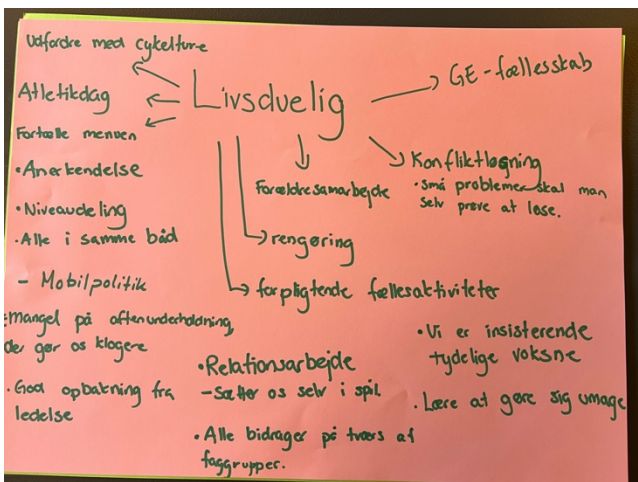 Udfordre med cykelture
Atletikdag
Fortælle menuen
Livsduelig
GE-fællesskab
Konfliktløsning
• små problemer skal man
selv prøve at løse.
Forældresamarbejde
rengøring
forpligtende fællesaktiviteter
• Anerkendelse
• Niveaudeling
• Alle i samme båd
- Mobilpolitik
-mangel på aftenunderholdning,
der gør os klogere
• God opbakning fra
ledelse
• Relationsarbejde
- Sætter os selv i spil
• Alle bidrager på tværs af
faggrupper.
• Vi er insisterende
tydelige voksne
• Lære at gøre sig umage